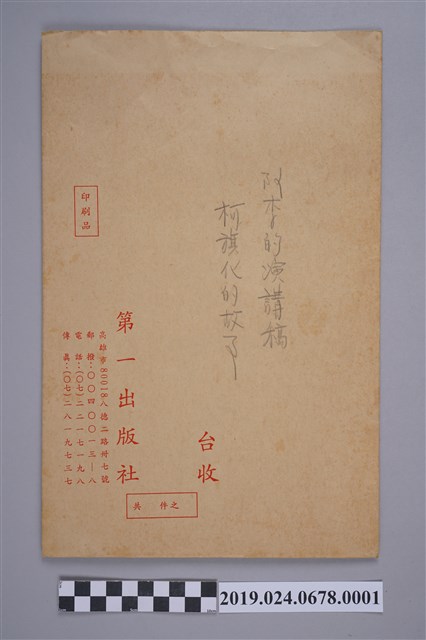 阿李的演講稿
柯旗化的故事
台收
印刷品
第一出版社
高雄市80018八德二路卅七號
郵撥:○○四○○一三—八
電話:(○七)二二一七一九八
傳真:(○七)二八一九七三七
共 件之
2019.024.0678.0001